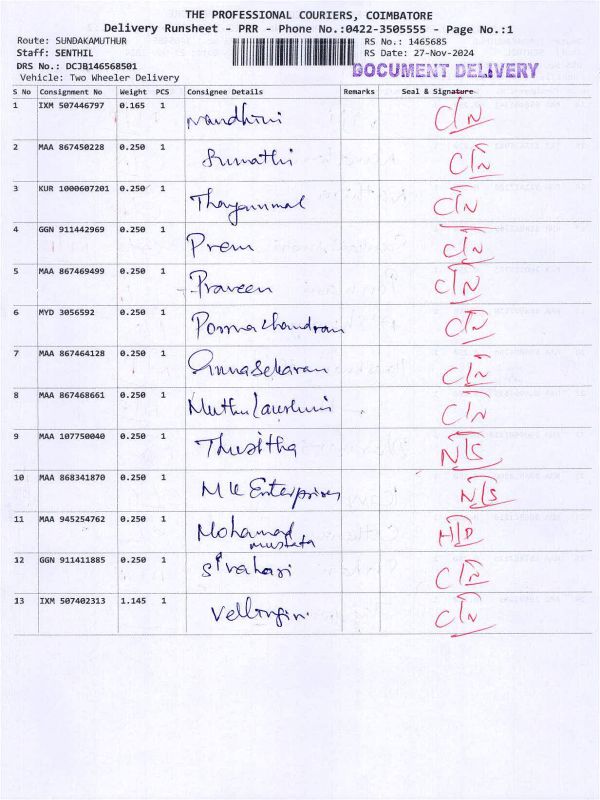 THE PROFESSIONAL COURIERS, COIMBATORE
Delivery Runsheet - PRR - Phone No.:0422-3505555 - Page No.:1
Route: SUNDAKAMUTHUR RS No.: 1465685
Staff: SENTHIL RS Date: 27-Nov-2024
DRS No.: DCJB146568501 DOCUMENT DELIVERY
Vehicle: Two Wheeler Delivery
S No Consignment No Weight PCS Consignee Details Remarks Seal & Signature
1 IXM 507446797 0.165 1 Nandhini C/N
2 MAA 867450228 0.250 1 Sumathi C/N
3 KUR 1000607201 0.250 1 Thayammal C/N
4 GGN 911442969 0.250 1 Prem C/N
5 MAA 867469499 0.250 1 Praveen C/N
6 MYD 3056592 0.250 1 C/N
7 MAA 867464128 0.250 1 Gunasekaran C/N
8 MAA 867468661 0.250 1 C/N
9 MAA 107750040 0.250 1 Thusitha N/S
10 MAA 868341870 0.250 1 MK Enterprises N/S
11 MAA 945254762 0.250 1 Mohamad
mustafa H/D
12 GGN 911411885 0.250 1 Sivahari C/N
13 IXM 507402313 1.145 1 Vellingiri C/N